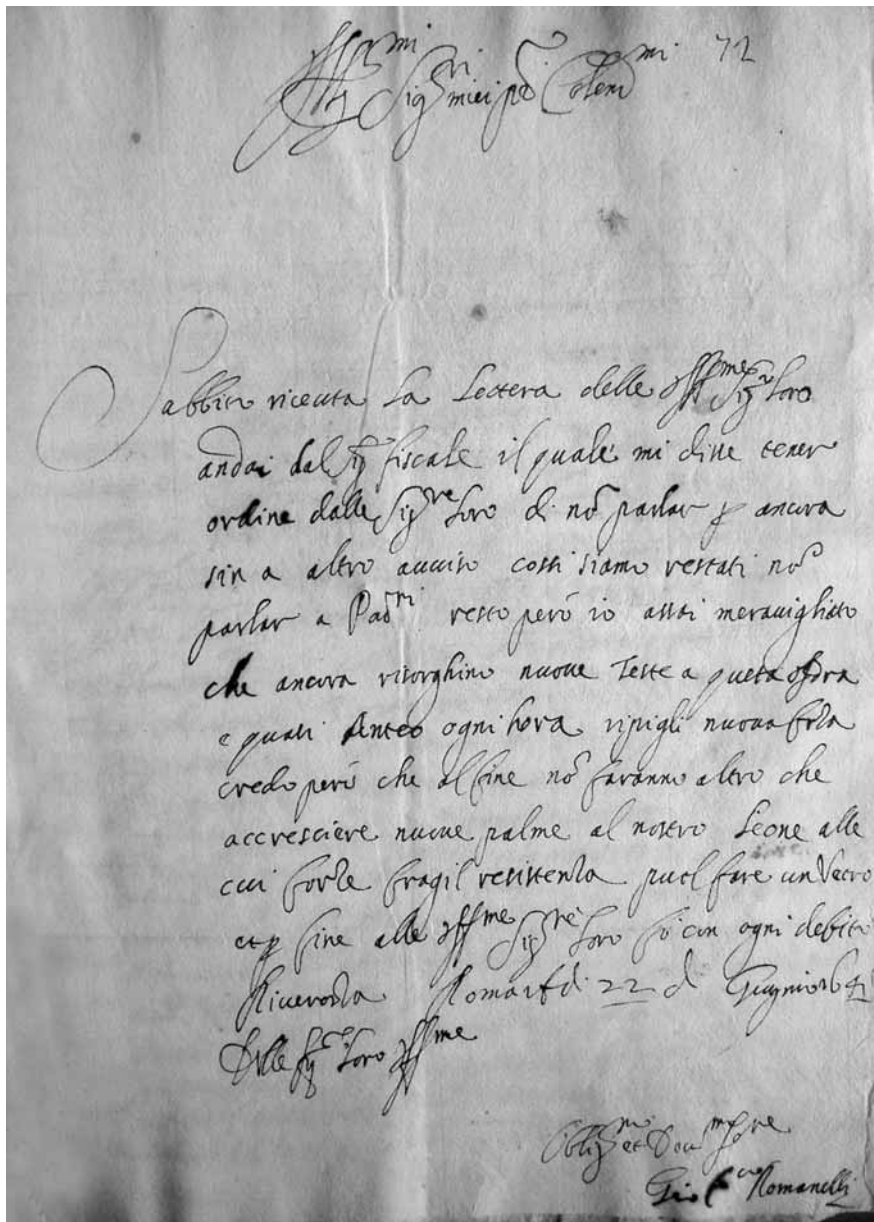 72
Ill.mi Sig.ri miei p.ni Colend.mi
Sabbito riceuta la lettera delle Ill.me Sig.re loro
andai dal Sig. fiscale il quale mi disse tener
ordine dalle Sig.re loro di nõ parlar p ancora
sin a altro auuiso cossi siamo restati nõ
parlar a Pad.ri resto però io assai merauigliato
che ancora risorghino nuoue Teste a questa Idra
e quasi Anteo ogni hora ripigli nuoua forza
credo però che al fine nõ faranno altro che
accresciere nuoue palme al nostro Leone alle
cui forze fragil resistenza puol fare un Vetro
et p fine alle Ill.me Sig.re loro fo con ogni debita
Riuerenza Roma di 22 di Giugnio
Delle Sig.re loro Ill.me
Oblig.mo et Deu.mo Ser.re
Gio F.co Romanelli